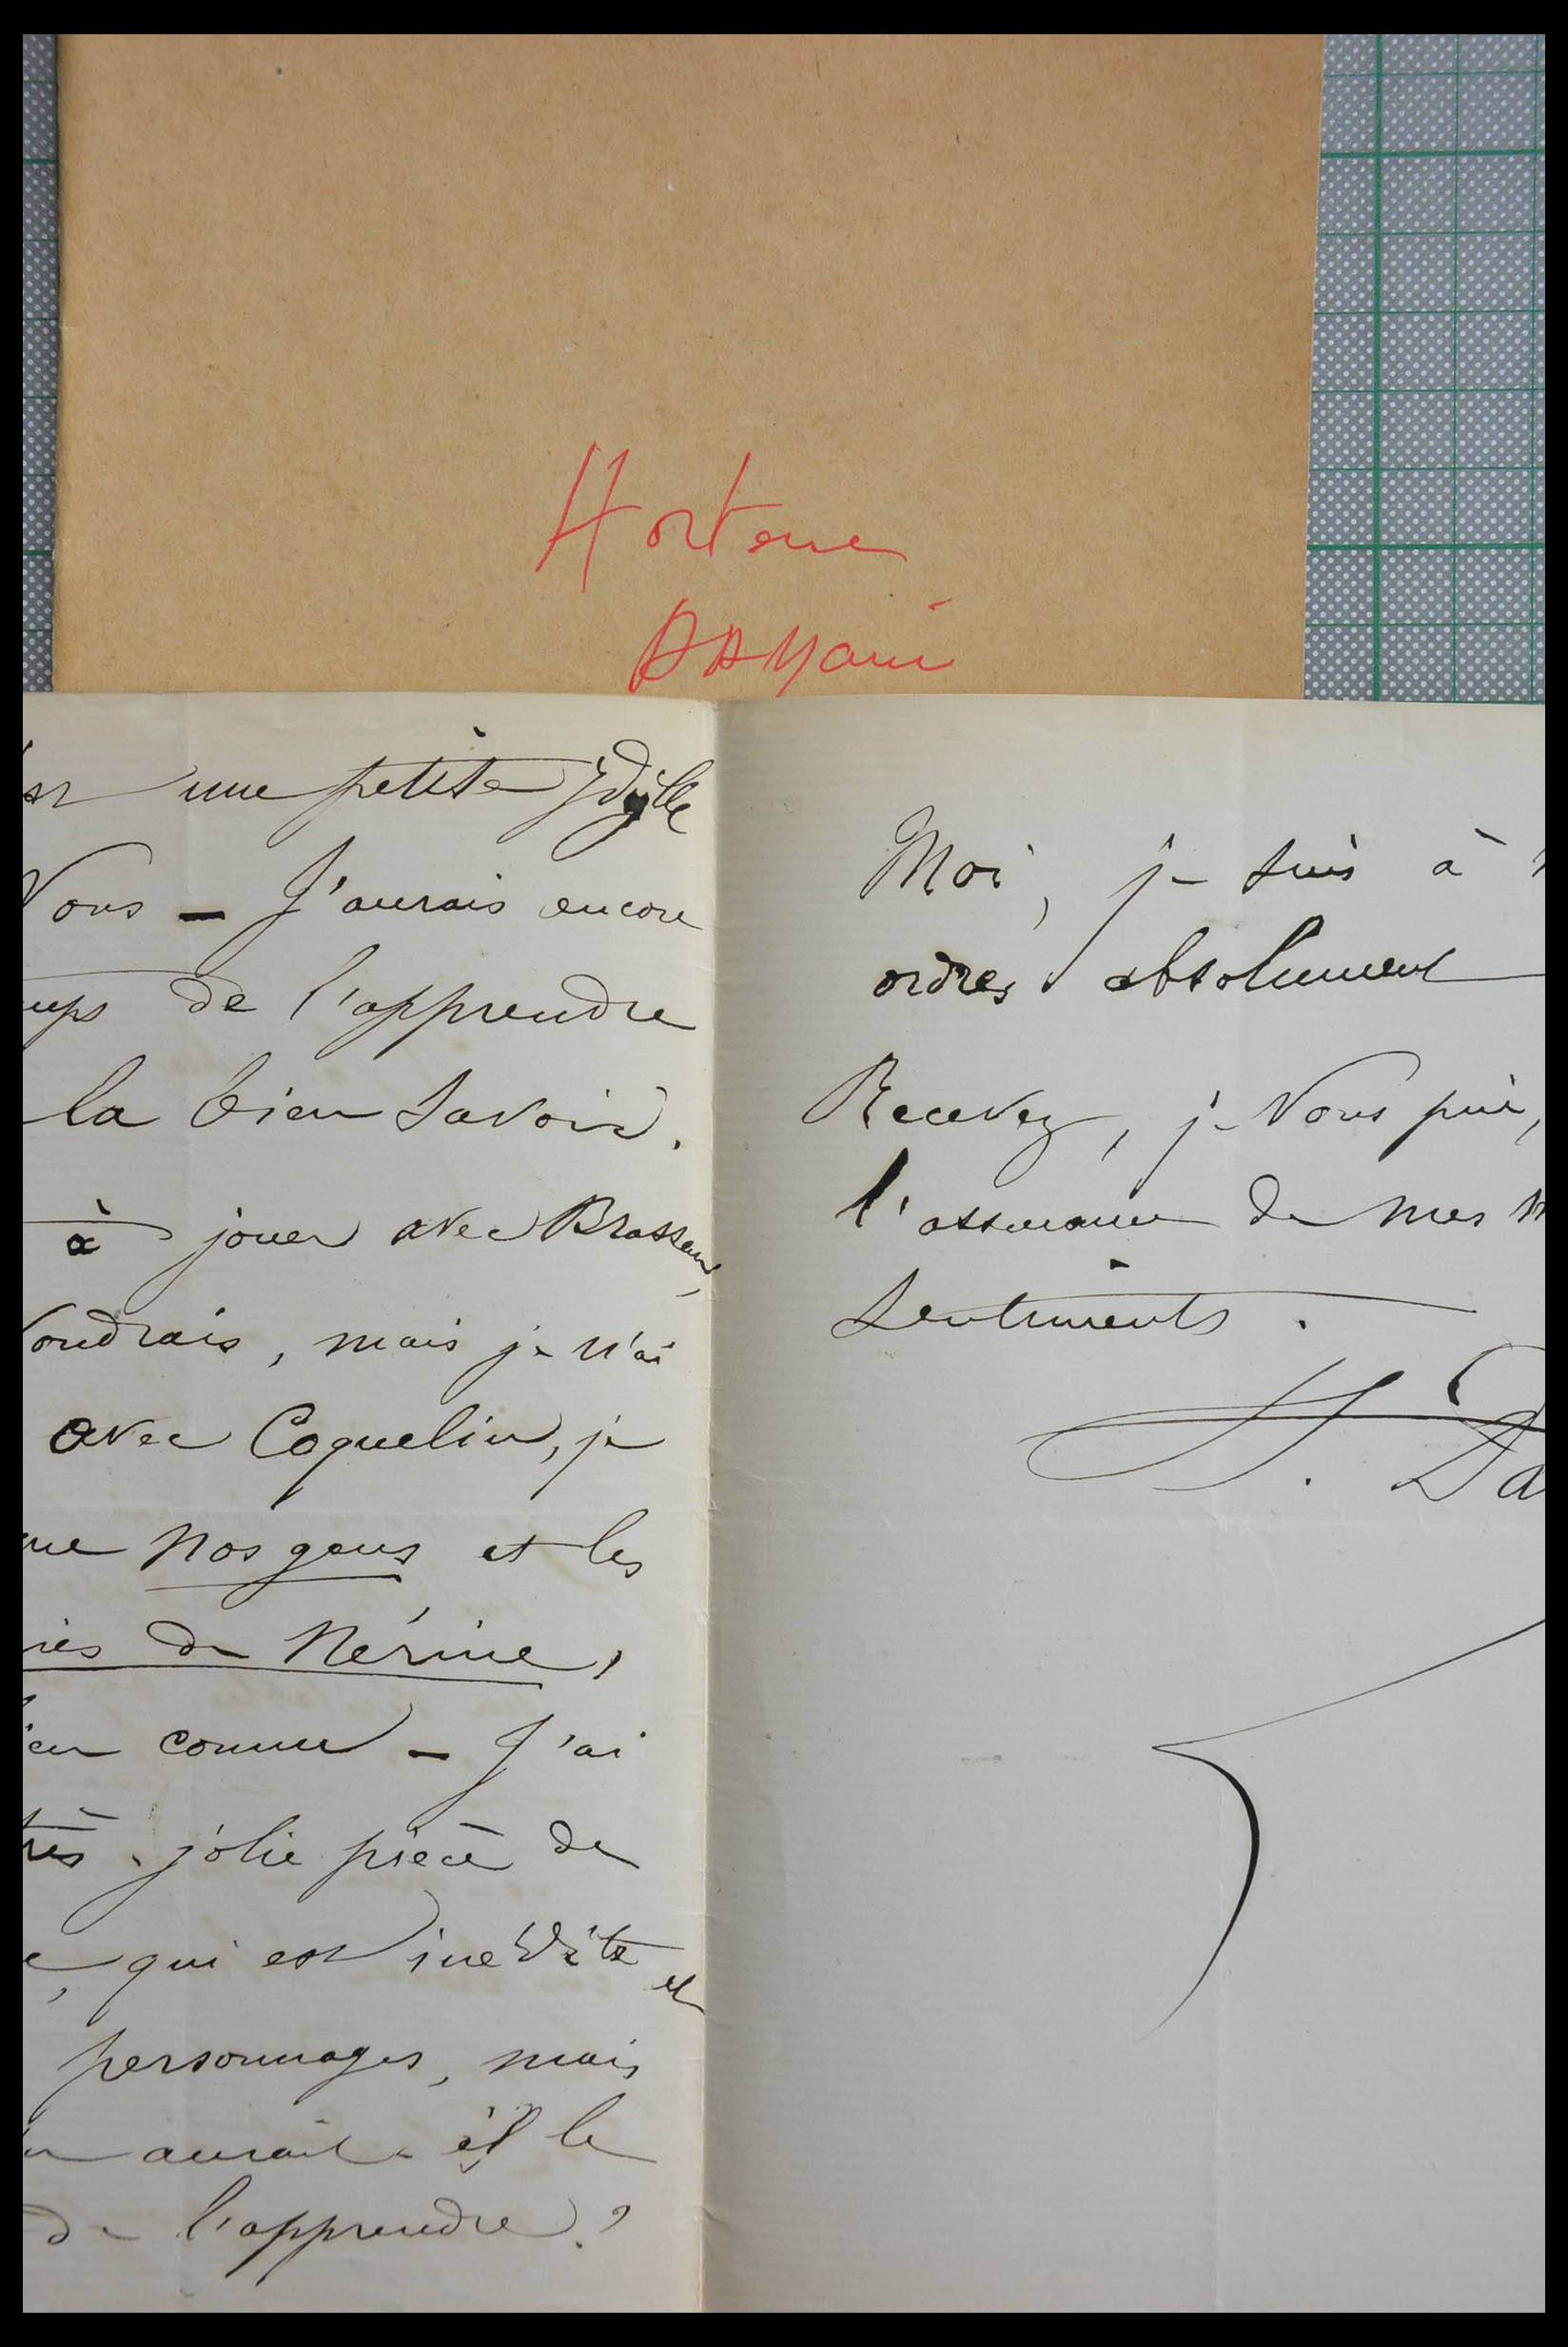 Hortense
DAMain
une petite Idylle
Vous — J'aurais encore
de l'apprendre
la bien savoir.
à jouer avec Brasseur,
voudrais, mais je n'ai
avec Coquelin, je
nos gens et les
de Nérine,
connu — J'ai
très jolie pièce de
qui est inédite et
personnages, mais
aurait-il le
de l'apprendre ?
Moi, je suis à
ordres absolument
Recevez, je vous prie,
l'assurance de mes
sentiments.
H. Da